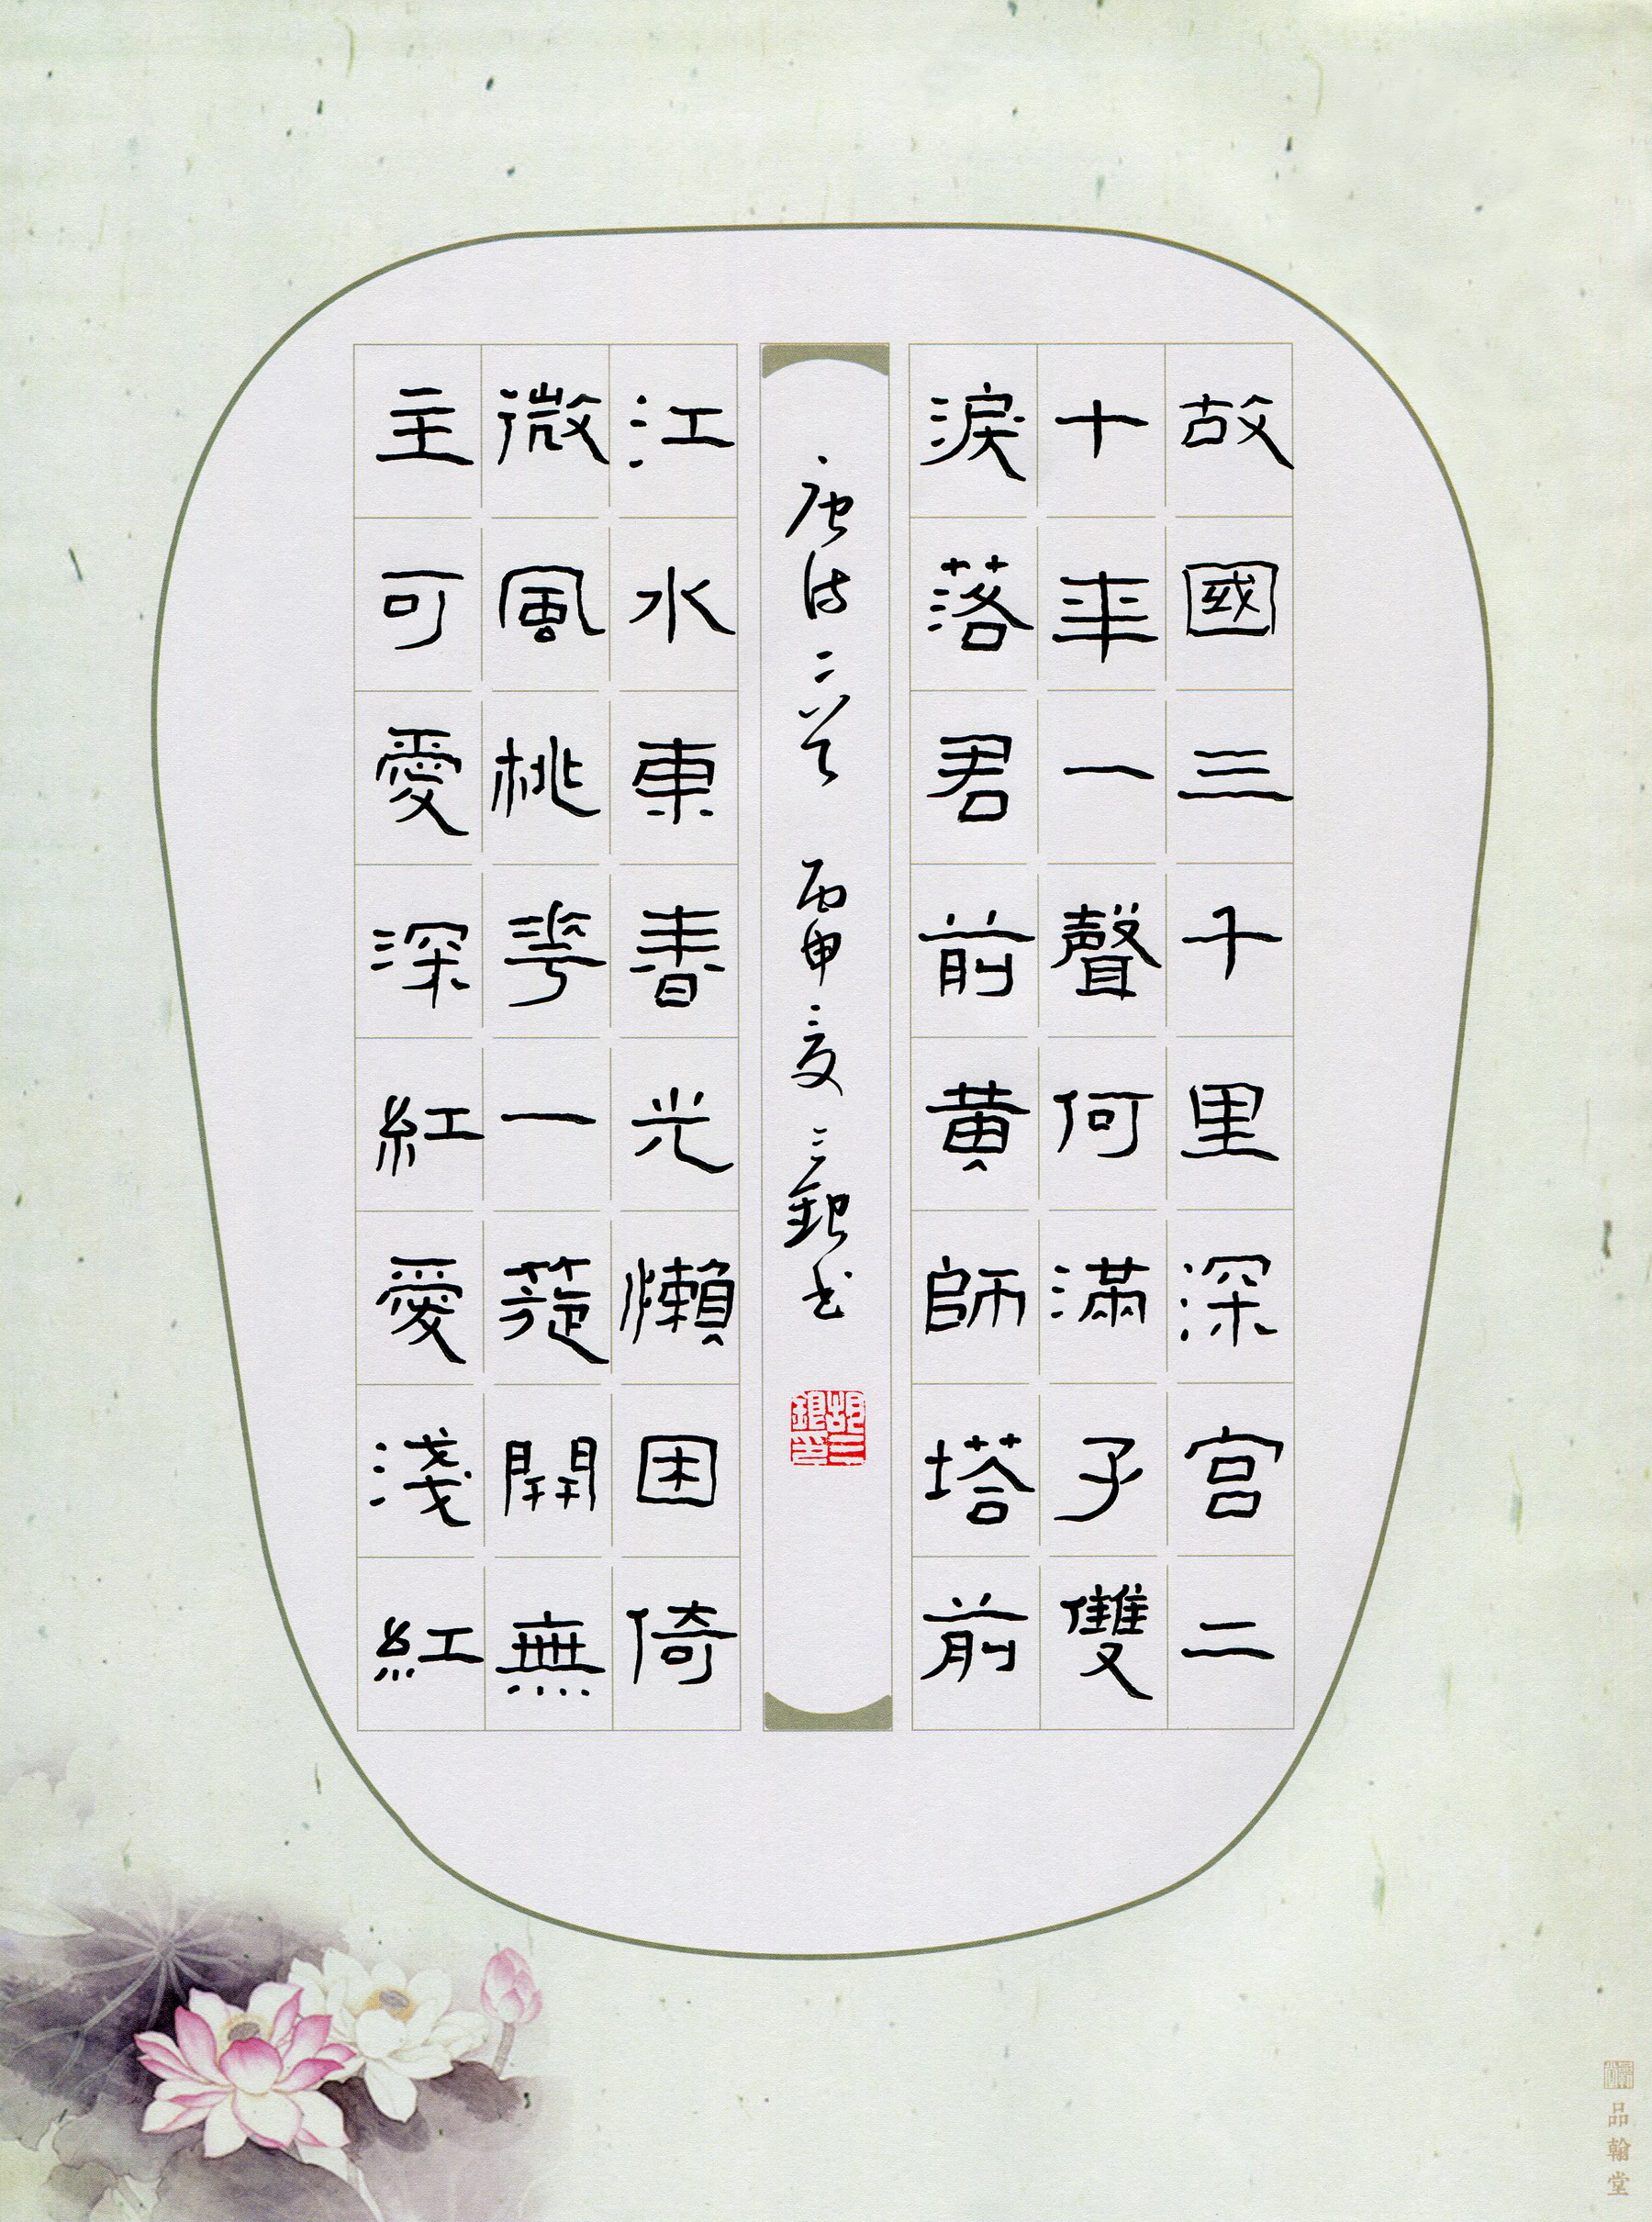 故國三千里深宮二
十年一聲何滿子雙
淚落君前黃師塔前
唐詩二首 丙申夏 三銀書
胡三銀印
江水東春光懶困倚
微風桃華一簇開無
主可愛深紅愛淺紅
品翰堂